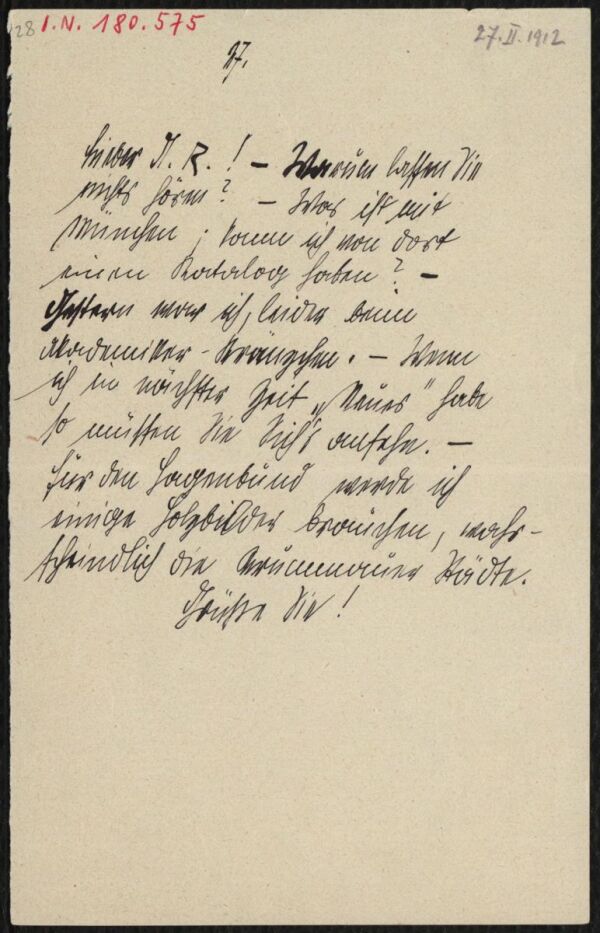 28 I.N. 180.575
27. II. 1912
27.
Lieber A. R.! – Warum lassen Sie
nichts hören? – Was ist mit
München; kann ich von dort
einen Katalog haben? –
Gestern war ich, leider beim
Akademiker-Kränzchen. – Wenn
ich in nächster Zeit „Neues" habe
so müssen Sie Sich's ansehn. –
für den Hagenbund werde ich
einige Holzbilder brauchen, wahr-
scheindlich die Krummauer Städte.
Grüße Sie!